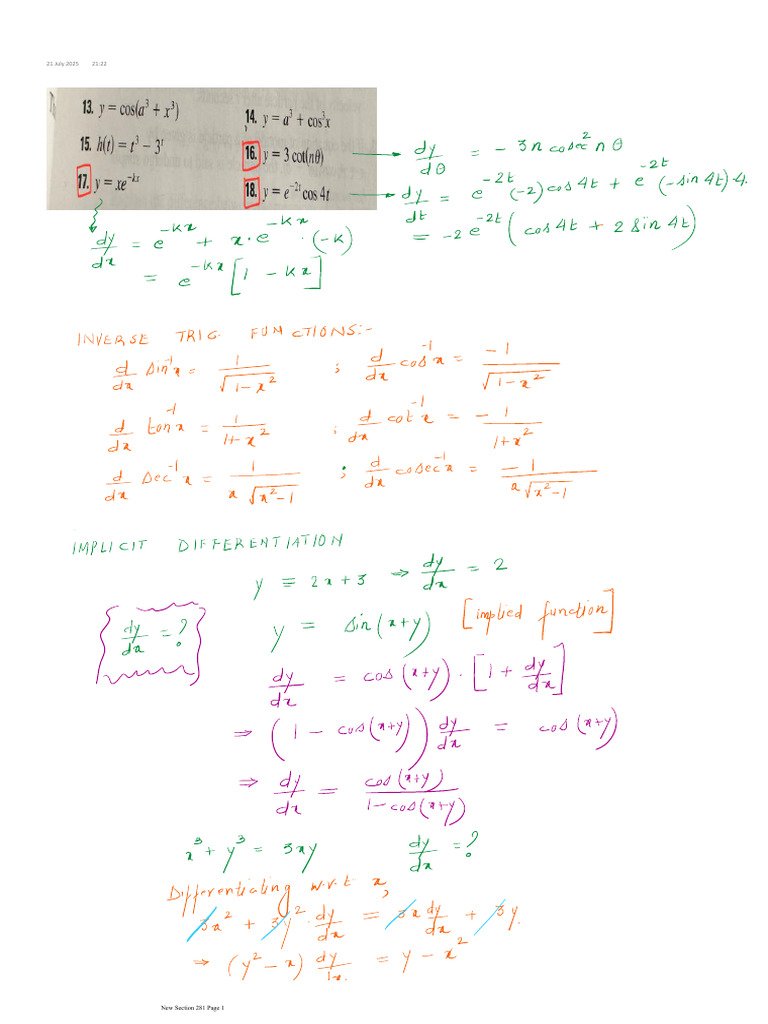 21 July 2025 21:22
13. y = cos(a³ + x³)
14. y = a³ + cos³x
15. h(t) = t³ − 3ᵗ
16. y = 3 cot(nθ) → dy/dθ = − 3n cosec² nθ
17. y = xe^(−kx)
18. y = e^(−2t) cos 4t → dy/dt = e^(−2t) (−2) cos 4t + e^(−2t) (−sin 4t)·4.
= −2 e^(−2t) (cos 4t + 2 sin 4t)
dy/dx = e^(−kx) + x·e^(−kx) · (−k)
= e^(−kx) [1 − kx]
INVERSE TRIG. FUNCTIONS:-
d/dx sin⁻¹x = 1/√(1−x²) ; d/dx cos⁻¹x = −1/√(1−x²)
d/dx tan⁻¹x = 1/(1+x²) ; d/dx cot⁻¹x = −1/(1+x²)
d/dx sec⁻¹x = 1/(x√(x²−1)) ; d/dx cosec⁻¹x = −1/(x√(x²−1))
IMPLICIT DIFFERENTIATION
y = 2x+3 → dy/dx = 2
dy/dx = ?
y = sin(x+y) [implied function]
dy/dx = cos(x+y) · [1 + dy/dx]
⇒ (1 − cos(x+y)) dy/dx = cos(x+y)
⇒ dy/dx = cos(x+y)/(1−cos(x+y))
x³ + y³ = 3xy dy/dx = ?
Differentiating w.r.t x,
3x² + 3y² · dy/dx = 3x dy/dx + 3y.
⇒ (y² − x) dy/dx = y − x²
New Section 281 Page 1